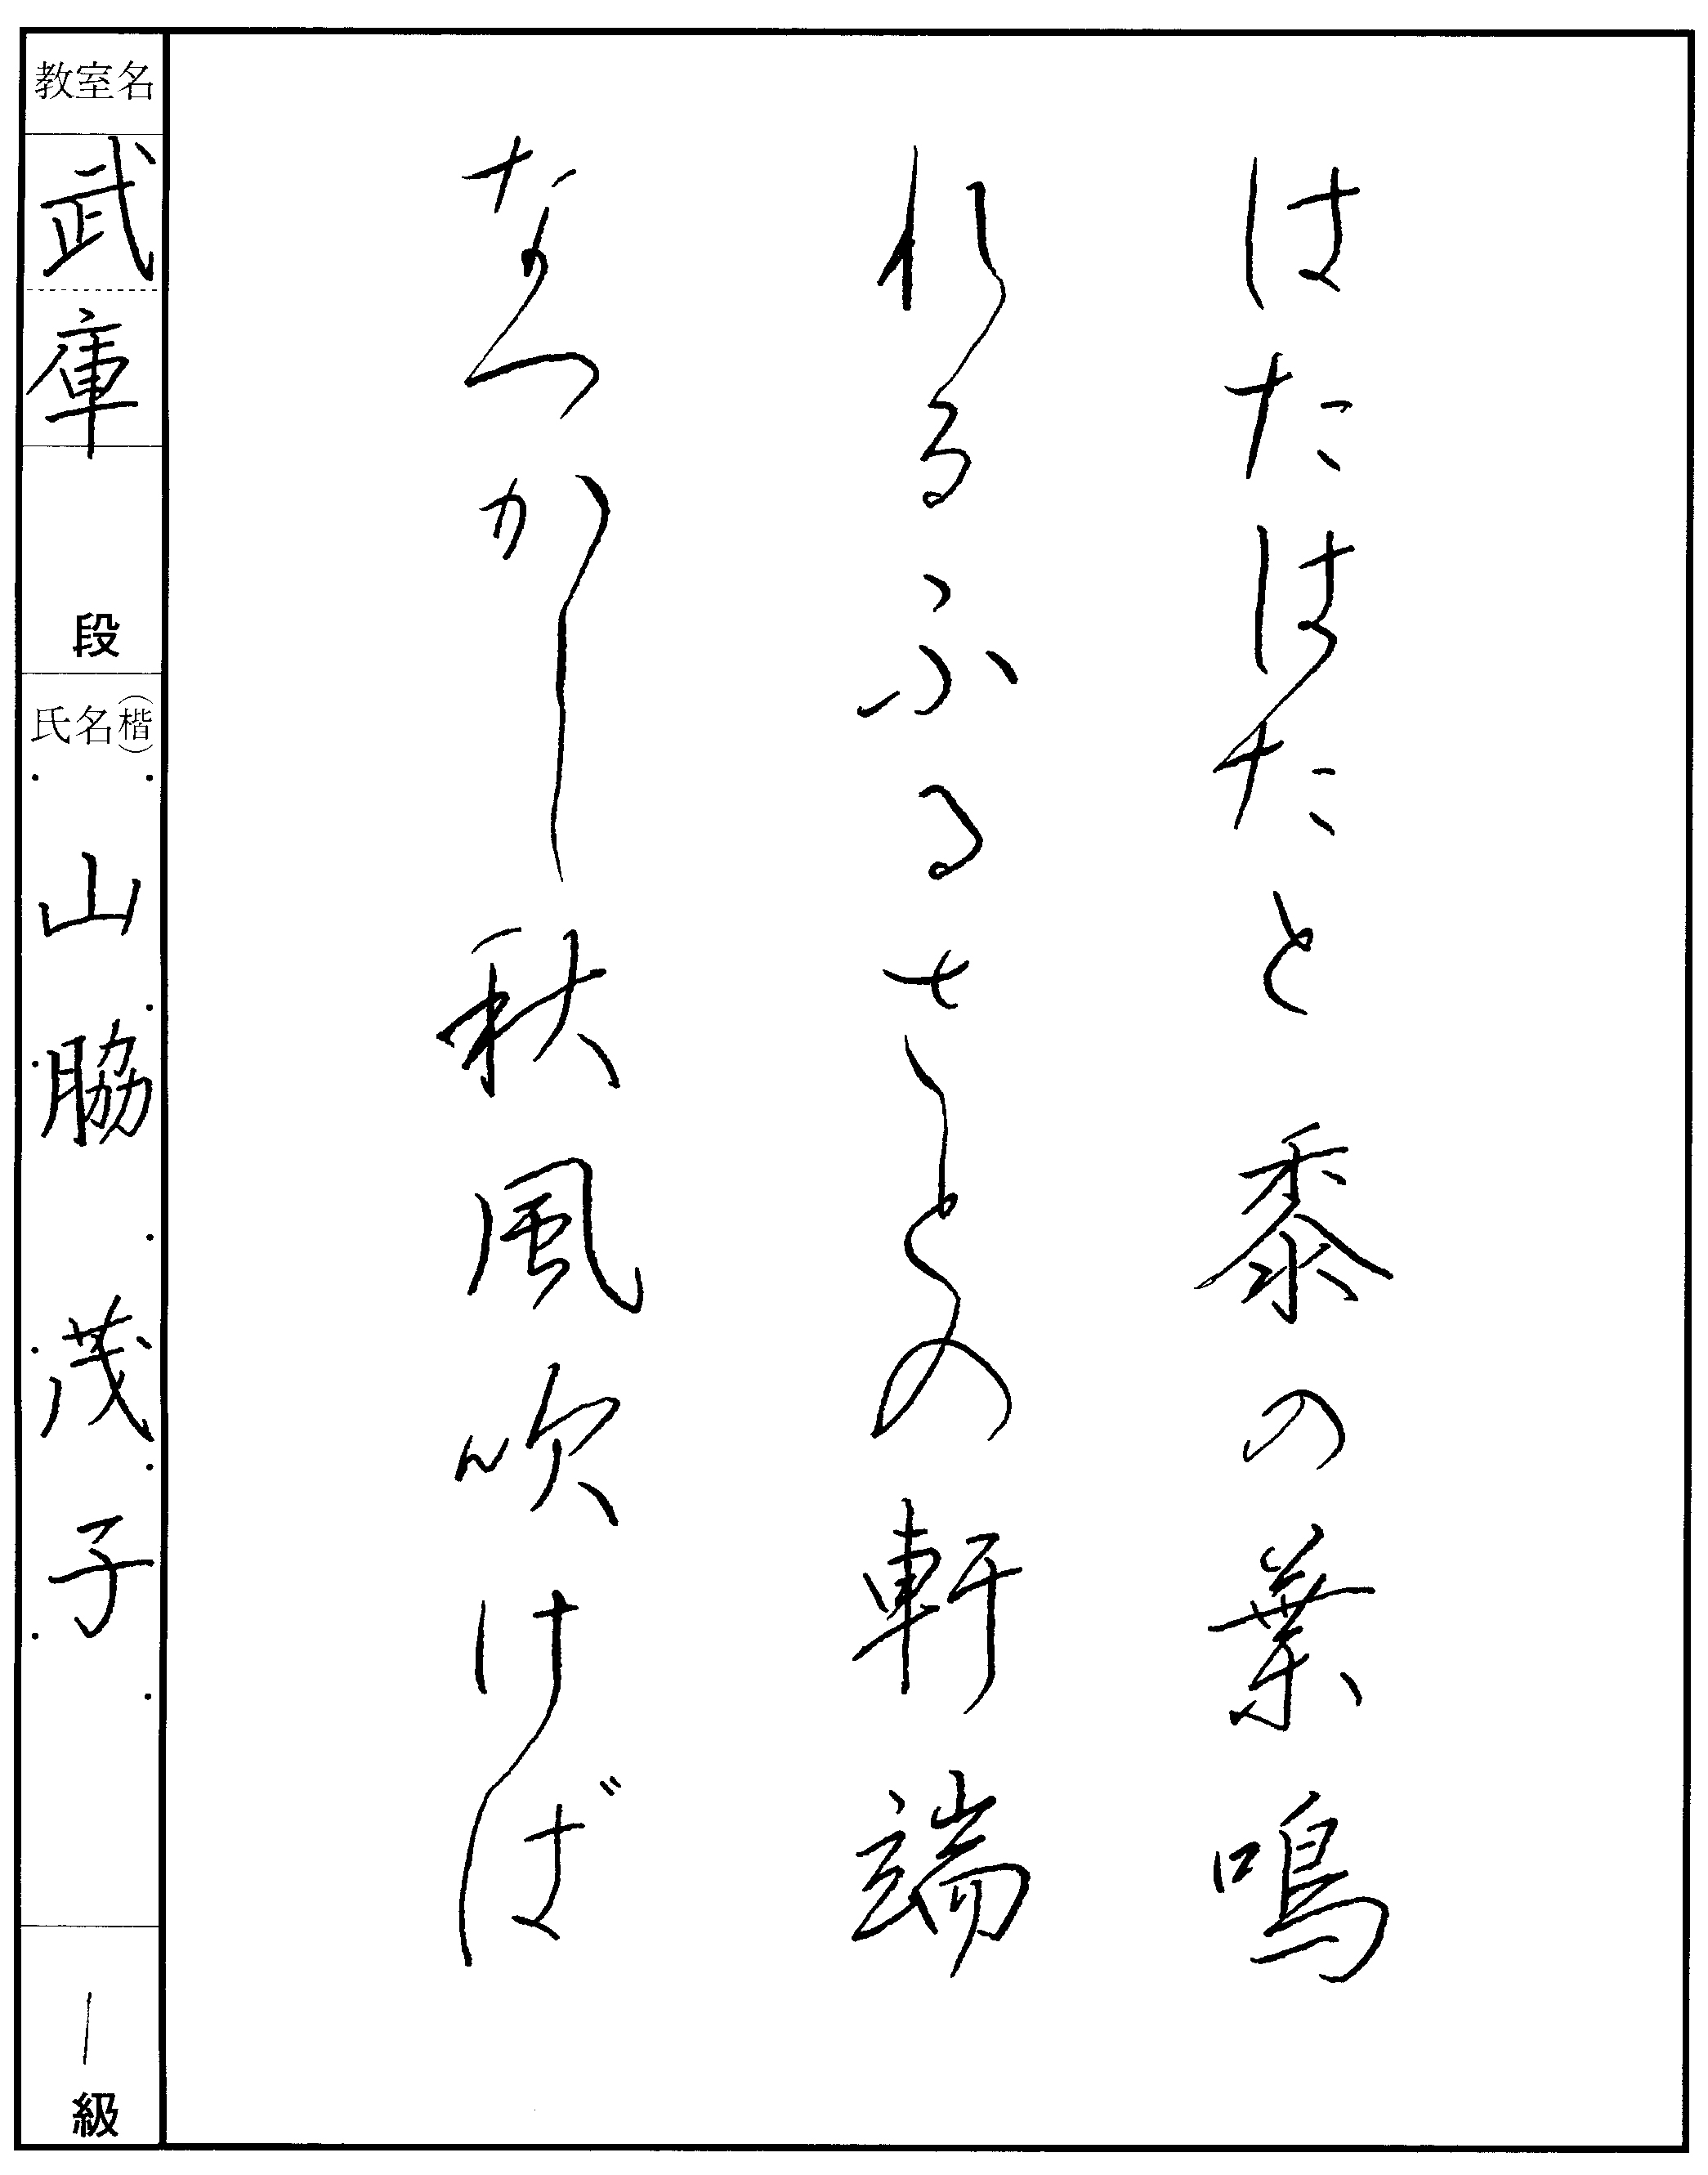 はたはたと黍の葉鳴
れるふるさとの軒端
なつかし秋風吹けば
教室名
武庫
段
氏名(楷)
山脇茂子
一級